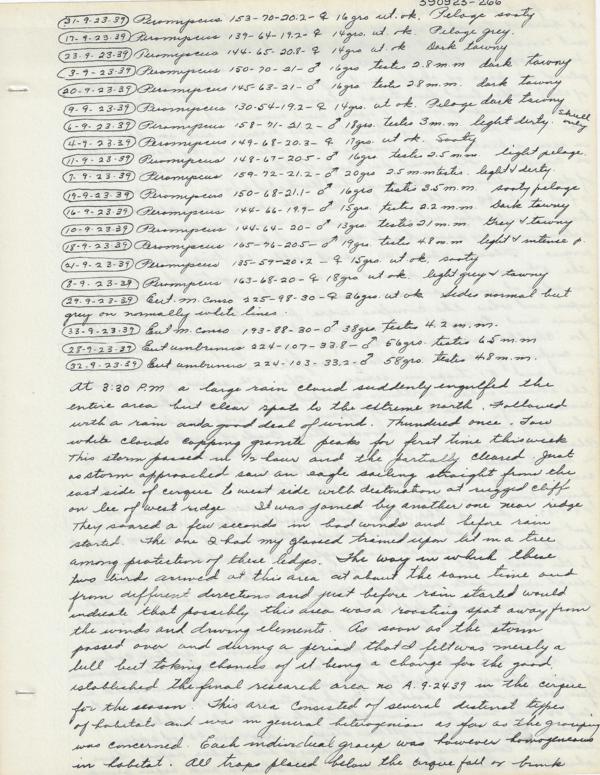 390923-266
31-9-23-39 Peromyscus 153-70-20.2-♀ 16grs ut. ok. Pelage sooty
17-9-23-39 Peromyscus 139-64-19.2-♀ 14grs. ut. ok. Pelage grey.
23-9-23-39 Peromyscus 144-65-20.8-♀ 14grs ut ok Dark tawny
3-9-23-39 Peromyscus 150-70-21-♂ 16grs testes 2.8 m.m dark tawny
20-9-23-39 Peromyscus 145-63-21-♂ 16grs testes 28 m.m. dark tawny
9-9-23-39 Peromyscus 130-54-19.2-♀ 14grs. ut ok. Pelage dark tawny
6-9-23-39 Peromyscus 158-71-21.2-♂ 18grs. testes 3 m.m. light dirty. Skull only
4-9-23-39 Peromyscus 149-68-20.3-♀ 17grs. ut ok. Sooty
11-9-23-39 Peromyscus 148-67-20.5-♂ 16grs testes 2.5 m.m. light pelage.
7-9-23-39 Peromyscus 159-72-21.2-♂ 20grs 2.5 m.m testes. light & dirty
19-9-23-39 Peromyscus 150-68-21.1-♂ 16grs testes 3.5 m.m. sooty pelage
16-9-23-39 Peromyscus 144-66-19.9-♂ 15grs. testes 2.2 m.m. Dark tawny
10-9-23-39 Peromyscus 144-64-20-♂ 13grs. testes 21 m.m. Grey & tawny
18-9-23-39 Peromyscus 165-76-20.5-♂ 19grs. testes 4.8 m.m light & intense
21-9-23-39 Peromyscus 135-59-20.2-♀ 15grs. ut ok. sooty
8-9-23-39 Peromyscus 163-68-20-♀ 18grs. ut ok. light grey & tawny
29-9-23-39 Eut. m. conso 225-98-30-♀ 36grs. ut ok Sides normal but
grey on normally white lines.
33-9-23-39 Eut m. conso 193-88-30-♂ 38grs testes 4.2 m.m.
28-9-23-39 Eut umbrinus 224-107-33.8-♂ 56grs. testes 6.5 m.m
32-9-23-39 Eut umbrinus 224-103-33.2-♂ 58grs. testes 4.8 m.m.
At 3:30 P.M a large rain cloud suddenly engulfed the
entire area but clear spots to the extreme north. Followed
with a rain and a good deal of wind. Thundered once. Few
white clouds capping granite peaks for first time this week
This storm passed in ½ hour and the partially cleared. Just
as storm approached saw an eagle sailing straight from the
east side of cirque to west side with destination at rugged cliff
on lee of west ridge. It was joined by another one near ridge
They soared a few seconds in hard winds and before rain
started. The one I had my glasses trained upon lit in a tree
among protection of these ledges. The way in which these
two birds arrived at this area at about the same time and
from different directions and just before rain started would
indicate that possibly this area was a roosting spot away from
the winds and driving elements. As soon as the storm
passed over and during a period that I felt was merely a
lull but taking chances of it being a change for the good,
established the final research area no A.9-24-39 in the cirque
for the season. This area consisted of several distinct types
of habitats and was in general heterogenian as far as the grouping
was concerned. Each individual group was however homogeneous
in habitat. All traps placed below the cirque fall or brink